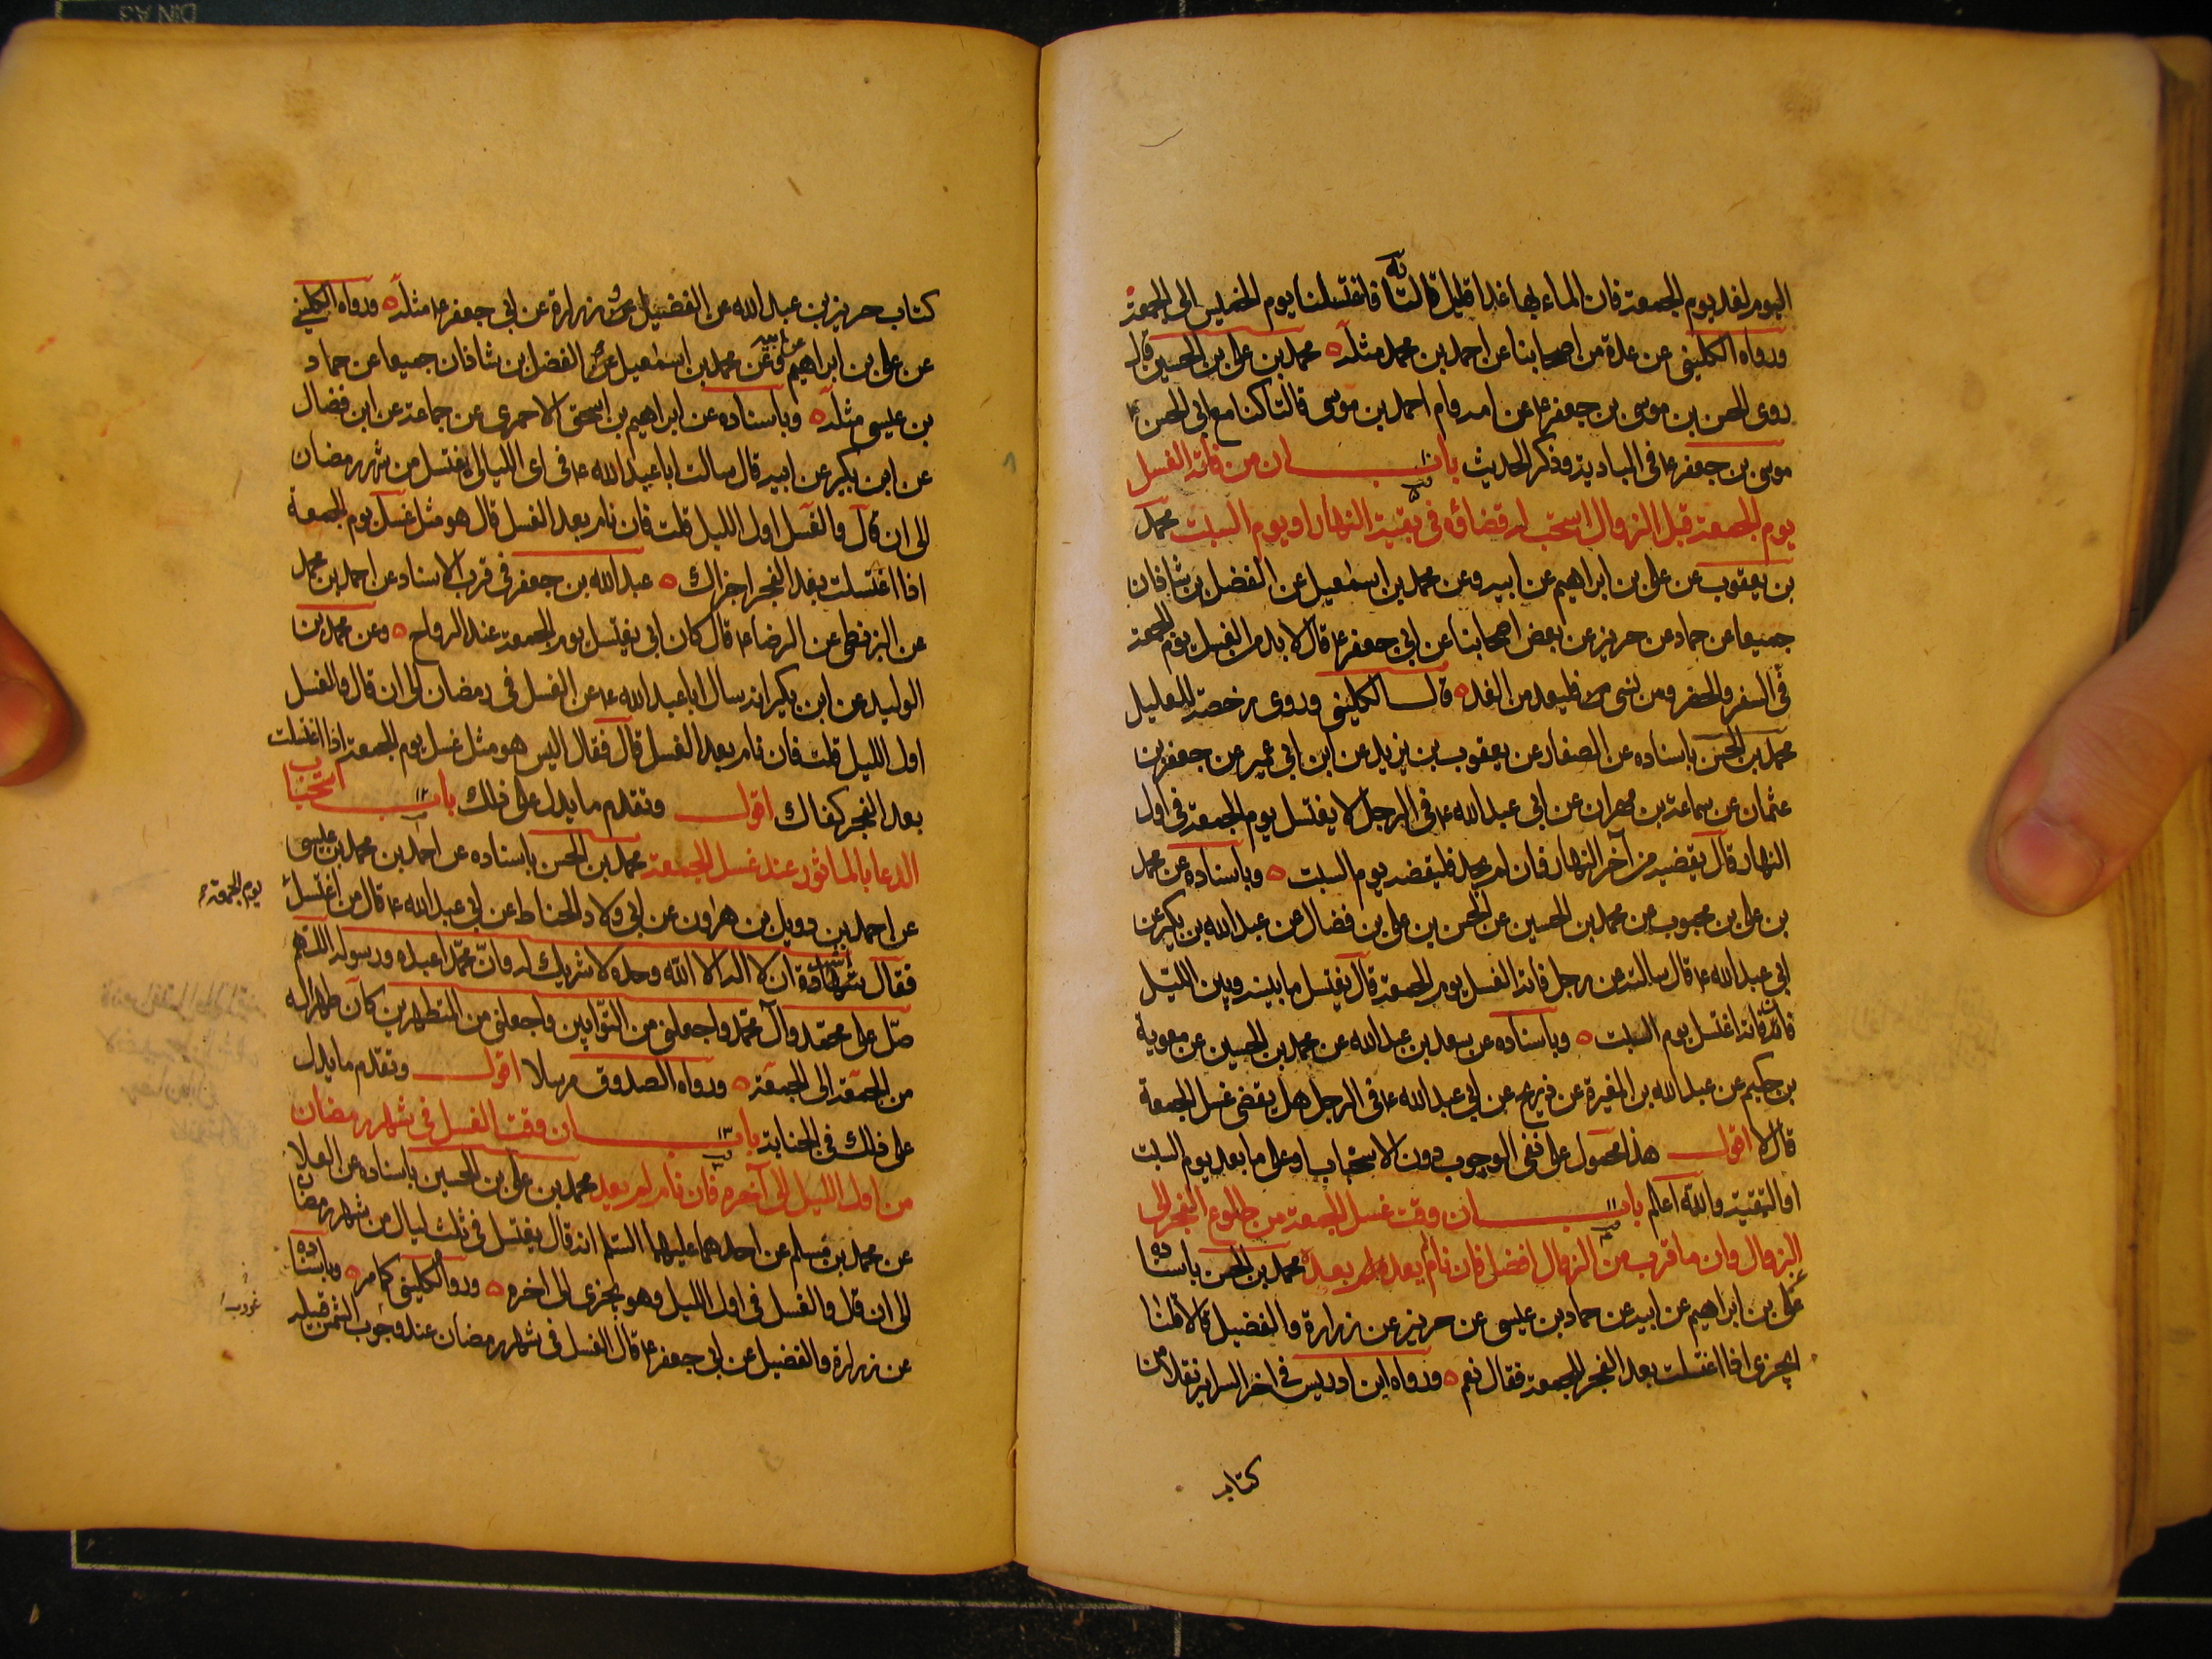 اليوم لغد يوم الجمعة فان الماء بها غدا قليل قالتا فاغتسلنا يوم الخميس الى الجمعة
ورواه الكليني عن عدة من اصحابنا عن احمد بن محمد مثله محمد بن علي بن الحسين قال
روى الحسن بن موسى بن جعفر ع عن امه وام احمد بن موسى قالتا كنا مع ابي الحسن ع
موسى بن جعفر ع في البادية وذكر الحديث باب ١٠ ان من فاته الغسل
يوم الجمعة قبل الزوال استحب له قضاؤه في بقية النهار او يوم السبت محمد
بن يعقوب عن علي بن ابراهيم عن ابيه وعن محمد بن اسمعيل عن الفضل بن شاذان
جميعا عن حماد عن حريز عن بعض اصحابنا عن ابي جعفر ع قال لا بد من الغسل يوم الجمعة
في السفر والحضر ومن نسى فليعد من الغد قال الكليني وروى رخصة للعليل
محمد بن الحسن باسناده عن الصفار عن يعقوب بن يزيد عن ابن ابي عمير عن جعفر بن
عثمان عن سماعة بن مهران عن ابي عبد الله ع في الرجل لا يغتسل يوم الجمعة في اول
النهار قال يقضيه من آخر النهار فان لم يجد فليقضه يوم السبت وباسناده عن محمد
بن علي بن محبوب عن محمد بن الحسين عن الحسن بن علي بن فضال عن عبد الله بن بكير عن
ابي عبد الله ع قال سالته عن رجل فاته الغسل يوم الجمعة قال يغتسل ما بينه وبين الليل
فان فاته اغتسل يوم السبت وباسناده عن سعد بن عبد الله عن محمد بن الحسين عن معوية
بن حكيم عن عبد الله بن المغيرة عن ذريح عن ابي عبد الله ع في الرجل هل يقضي غسل الجمعة
قال لا اقول هذا محمول على نفي الوجوب دون الاستحباب او على ما بعد يوم السبت
او التقية والله اعلم باب ١١ ان وقت غسل الجمعة من طلوع الفجر الى
الزوال وان ما قرب من الزوال افضل فان نام بعده لم يعده محمد بن الحسن باسناده
عن علي بن ابراهيم عن ابيه عن حماد بن عيسى عن حريز عن زرارة والفضيل قالا قلنا
ايجزى اذا اغتسلت بعد الفجر للجمعة فقال نعم ورواه ابن ادريس في اخر السراير نقلا من
كتاب
كتاب حريز بن عبد الله عن الفضيل وزرارة عن ابي جعفر ع مثله ورواه الكليني
عن علي بن ابراهيم عن ابيه وعن محمد بن اسمعيل عن الفضل بن شاذان جميعا عن حماد
بن عيسى مثله وباسناده عن ابراهيم بن اسحق الاحمرى عن جماعة عن ابن فضال
عن ابن بكير عن ابيه قال سالت ابا عبد الله ع في اى الليالي يغتسل من شهر رمضان
الى ان قال والغسل اول الليل قلت فان نام بعد الغسل قال هو مثل غسل يوم الجمعة
اذا اغتسلت بعد الفجر اجزاك عبد الله بن جعفر في قرب الاسناد عن احمد بن محمد
عن البزنطي عن الرضا ع قال كان ابي يغتسل يوم الجمعة عند الرواح وعن محمد بن
الوليد عن ابن بكير انه سال ابا عبد الله ع عن الغسل في رمضان الى ان قال والغسل
اول الليل قلت فان نام بعد الغسل قال فقال اليس هو مثل غسل يوم الجمعة اذا اغتسلت
بعد الفجر كفاك اقول وتقدم ما يدل على ذلك باب ١٢ استحباب
الدعا بالماثور عند غسل الجمعة محمد بن الحسن باسناده عن احمد بن محمد بن عيسى
عن احمد بن دويل بن هارون عن ابي ولاد الحناط عن ابي عبد الله ع قال من اغتسل
يوم الجمعة
فقال اشهد ان لا اله الا الله وحده لا شريك له وان محمدا عبده ورسوله اللهم
صل على محمد وآل محمد واجعلني من التوابين واجعلني من المتطهرين كان طهرا له
من الجمعة الى الجمعة ورواه الصدوق مرسلا اقول وتقدم ما يدل
على ذلك في الجنابة باب ١٣ ان وقت الغسل في شهر رمضان
من اول الليل الى آخره فان نام لم يعد محمد بن علي بن الحسين باسناده عن العلا
عن محمد بن مسلم عن احدهما عليهما السلم انه قال يغتسل في ثلث ليال من شهر رمضان
الى ان قال والغسل في اول الليل وهو يجزى الى اخره ورواه الكليني كما مر وباسناده
غروب
عن زرارة والفضيل عن ابي جعفر ع قال الغسل في شهر رمضان عند وجوب الشمس قبيله